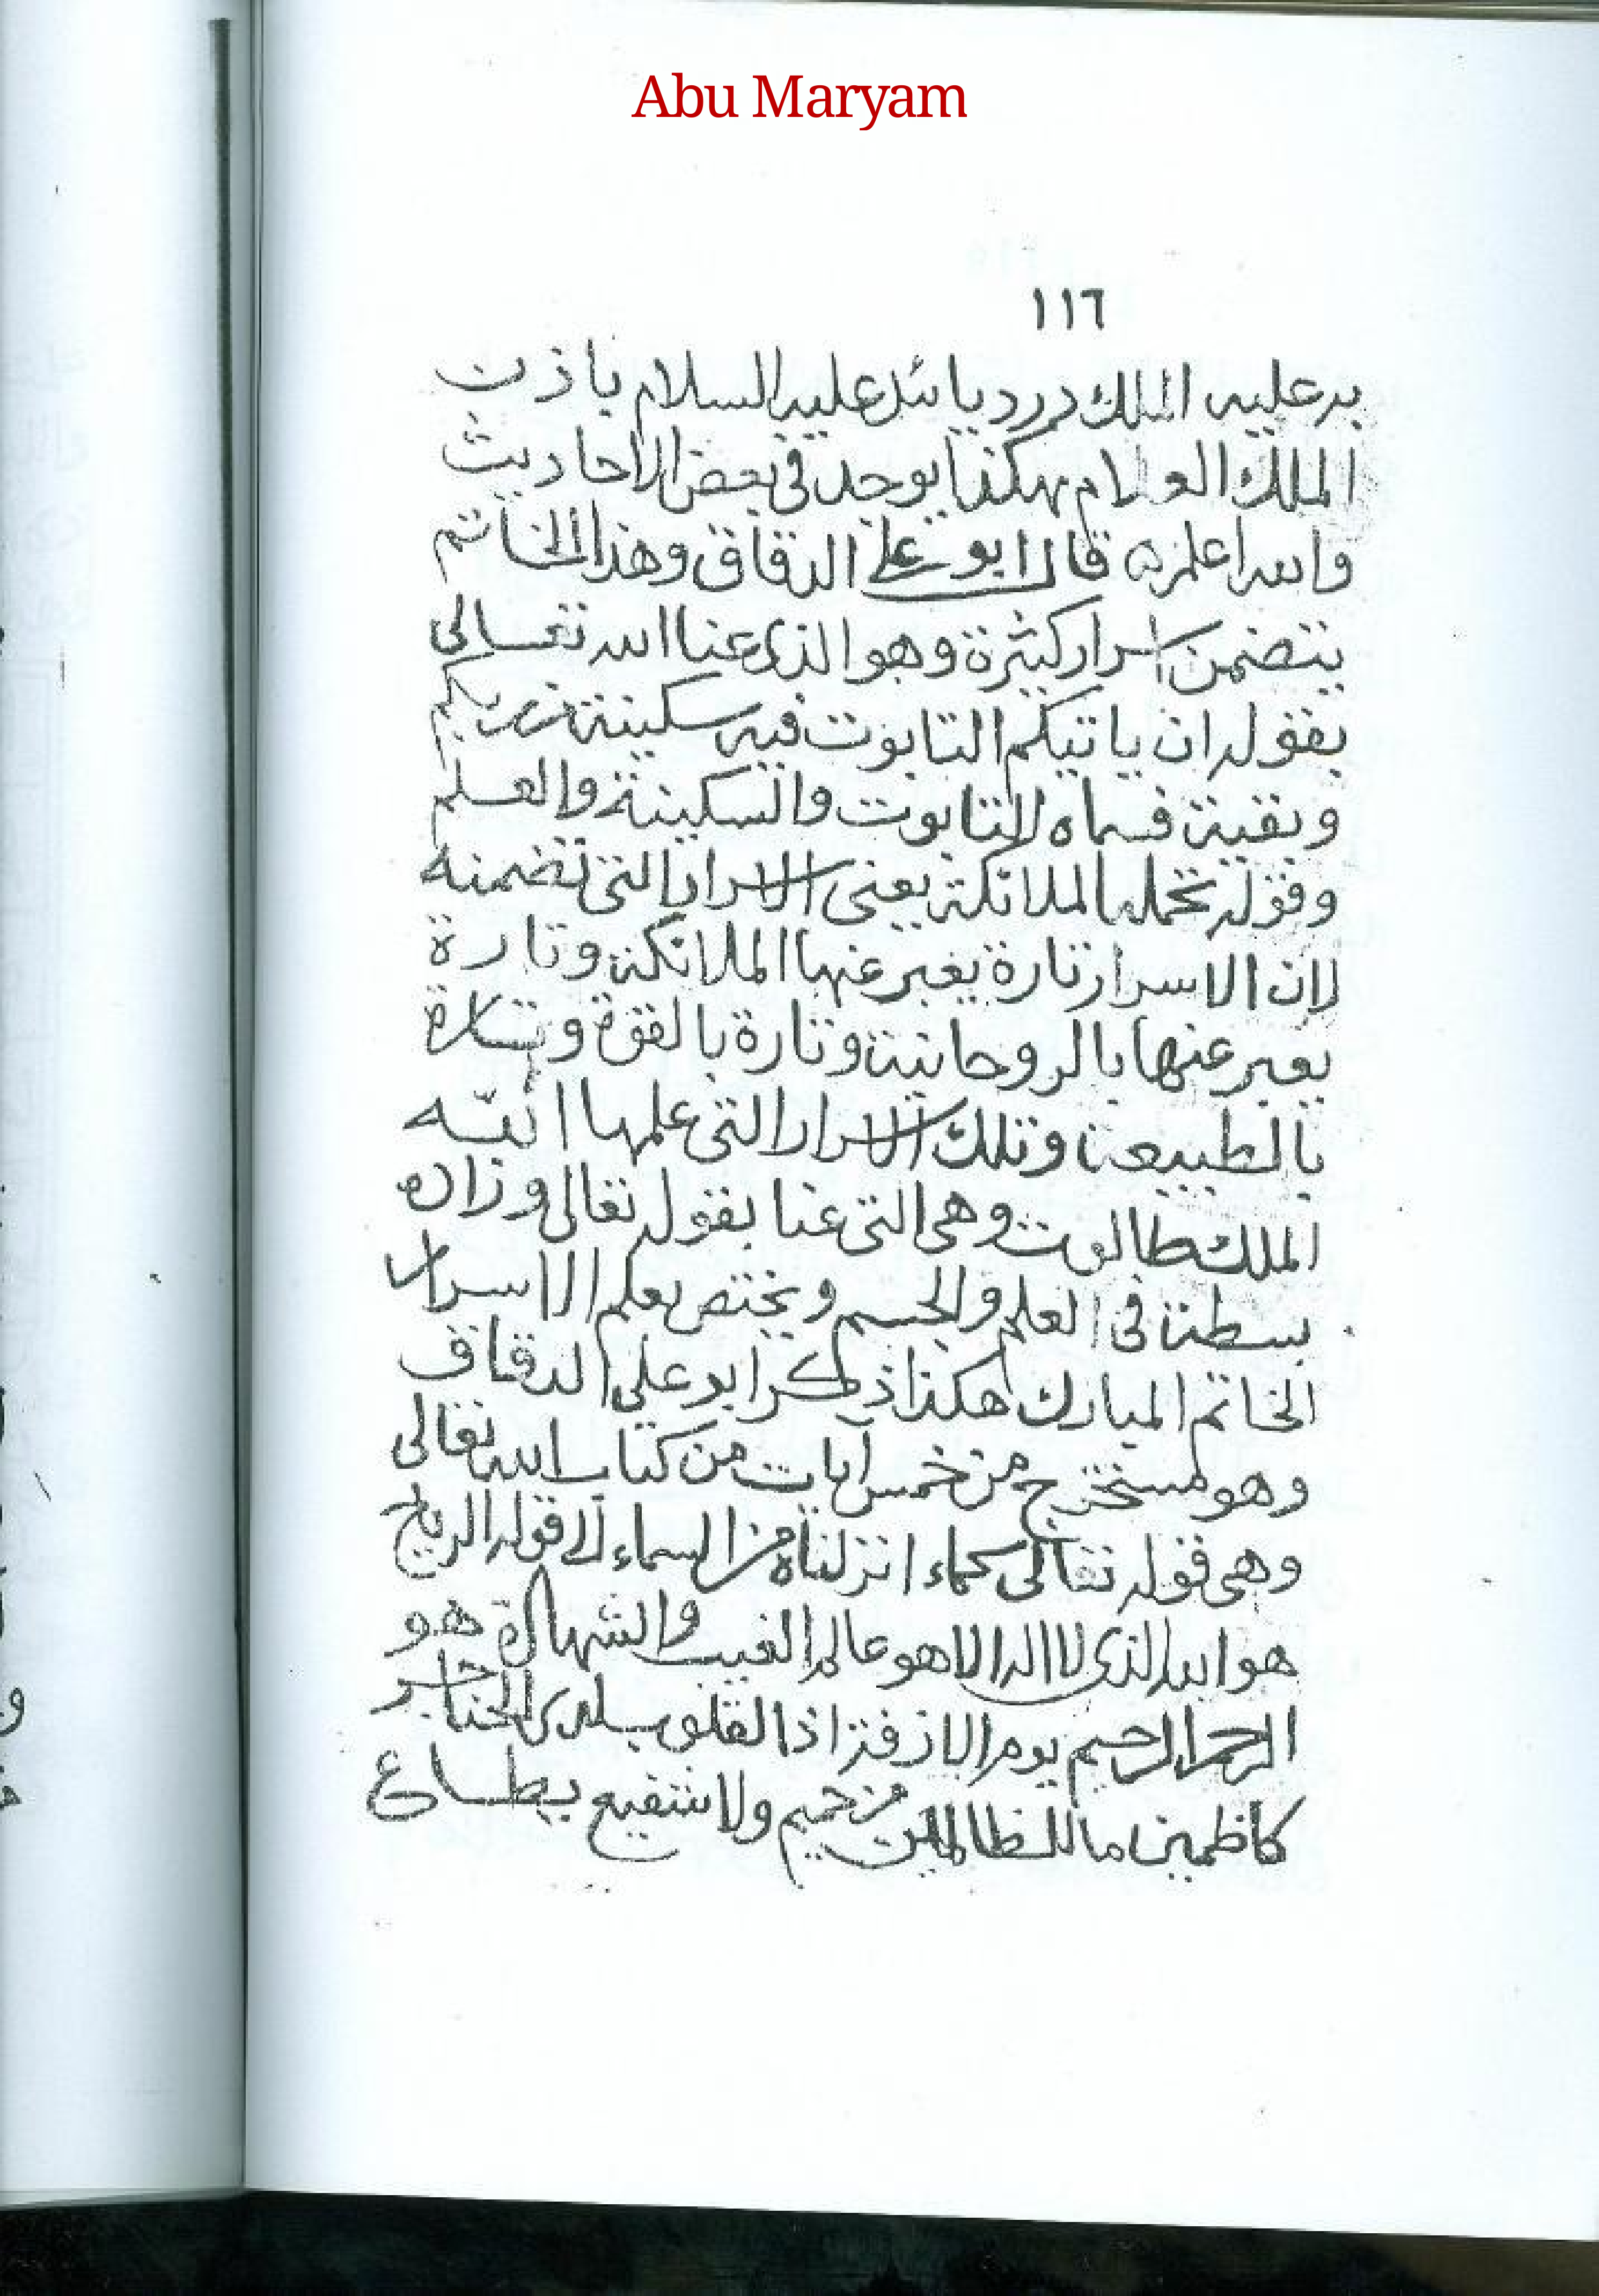 Abu Maryam
١١٦
به عليه الملك دردیائل عليه السلام باذن
الملك العلام هكذا يوجد في بعض الاحاديث
والله اعلم قال ابو علي الدقاق وهذا الخاتم
يتضمن اسرار كثيرة وهو الذي عنا الله تعالى
بقوله ان ياتيكم التابوت فيه سكينة من ربكم
وبقية فسماه التابوت والسكينة والعلم
وقوله تحمله الملائكة يعنى الاسرار التى تضمنه
لان الاسرار تارة يعبر عنها الملائكة وتارة
يعبر عنها بالروحانية وتارة بالقوة وتارة
بالطبيعة وتلك الاسرار التى علمها
الملك طالوت وهى التى عنا بقوله تعالى وزاده
بسطة فى العلم والجسم ويختص بعلم الاسرار
الخاتم المبارك هكذا ذكر ابو على الدقاق
وهو مستخرج من خمس آيات من كتاب الله تعالى
وهى قوله تعالى كماء انزلناه من السماء الى قوله الرياح
هو الله الذى لا اله الا هو عالم الغيب والشهادة هو
الرحمن الرحيم يوم الازفة اذ القلوب لدى الحناجر
كاظمين ما للظالمين من حميم ولا شفيع يطاع